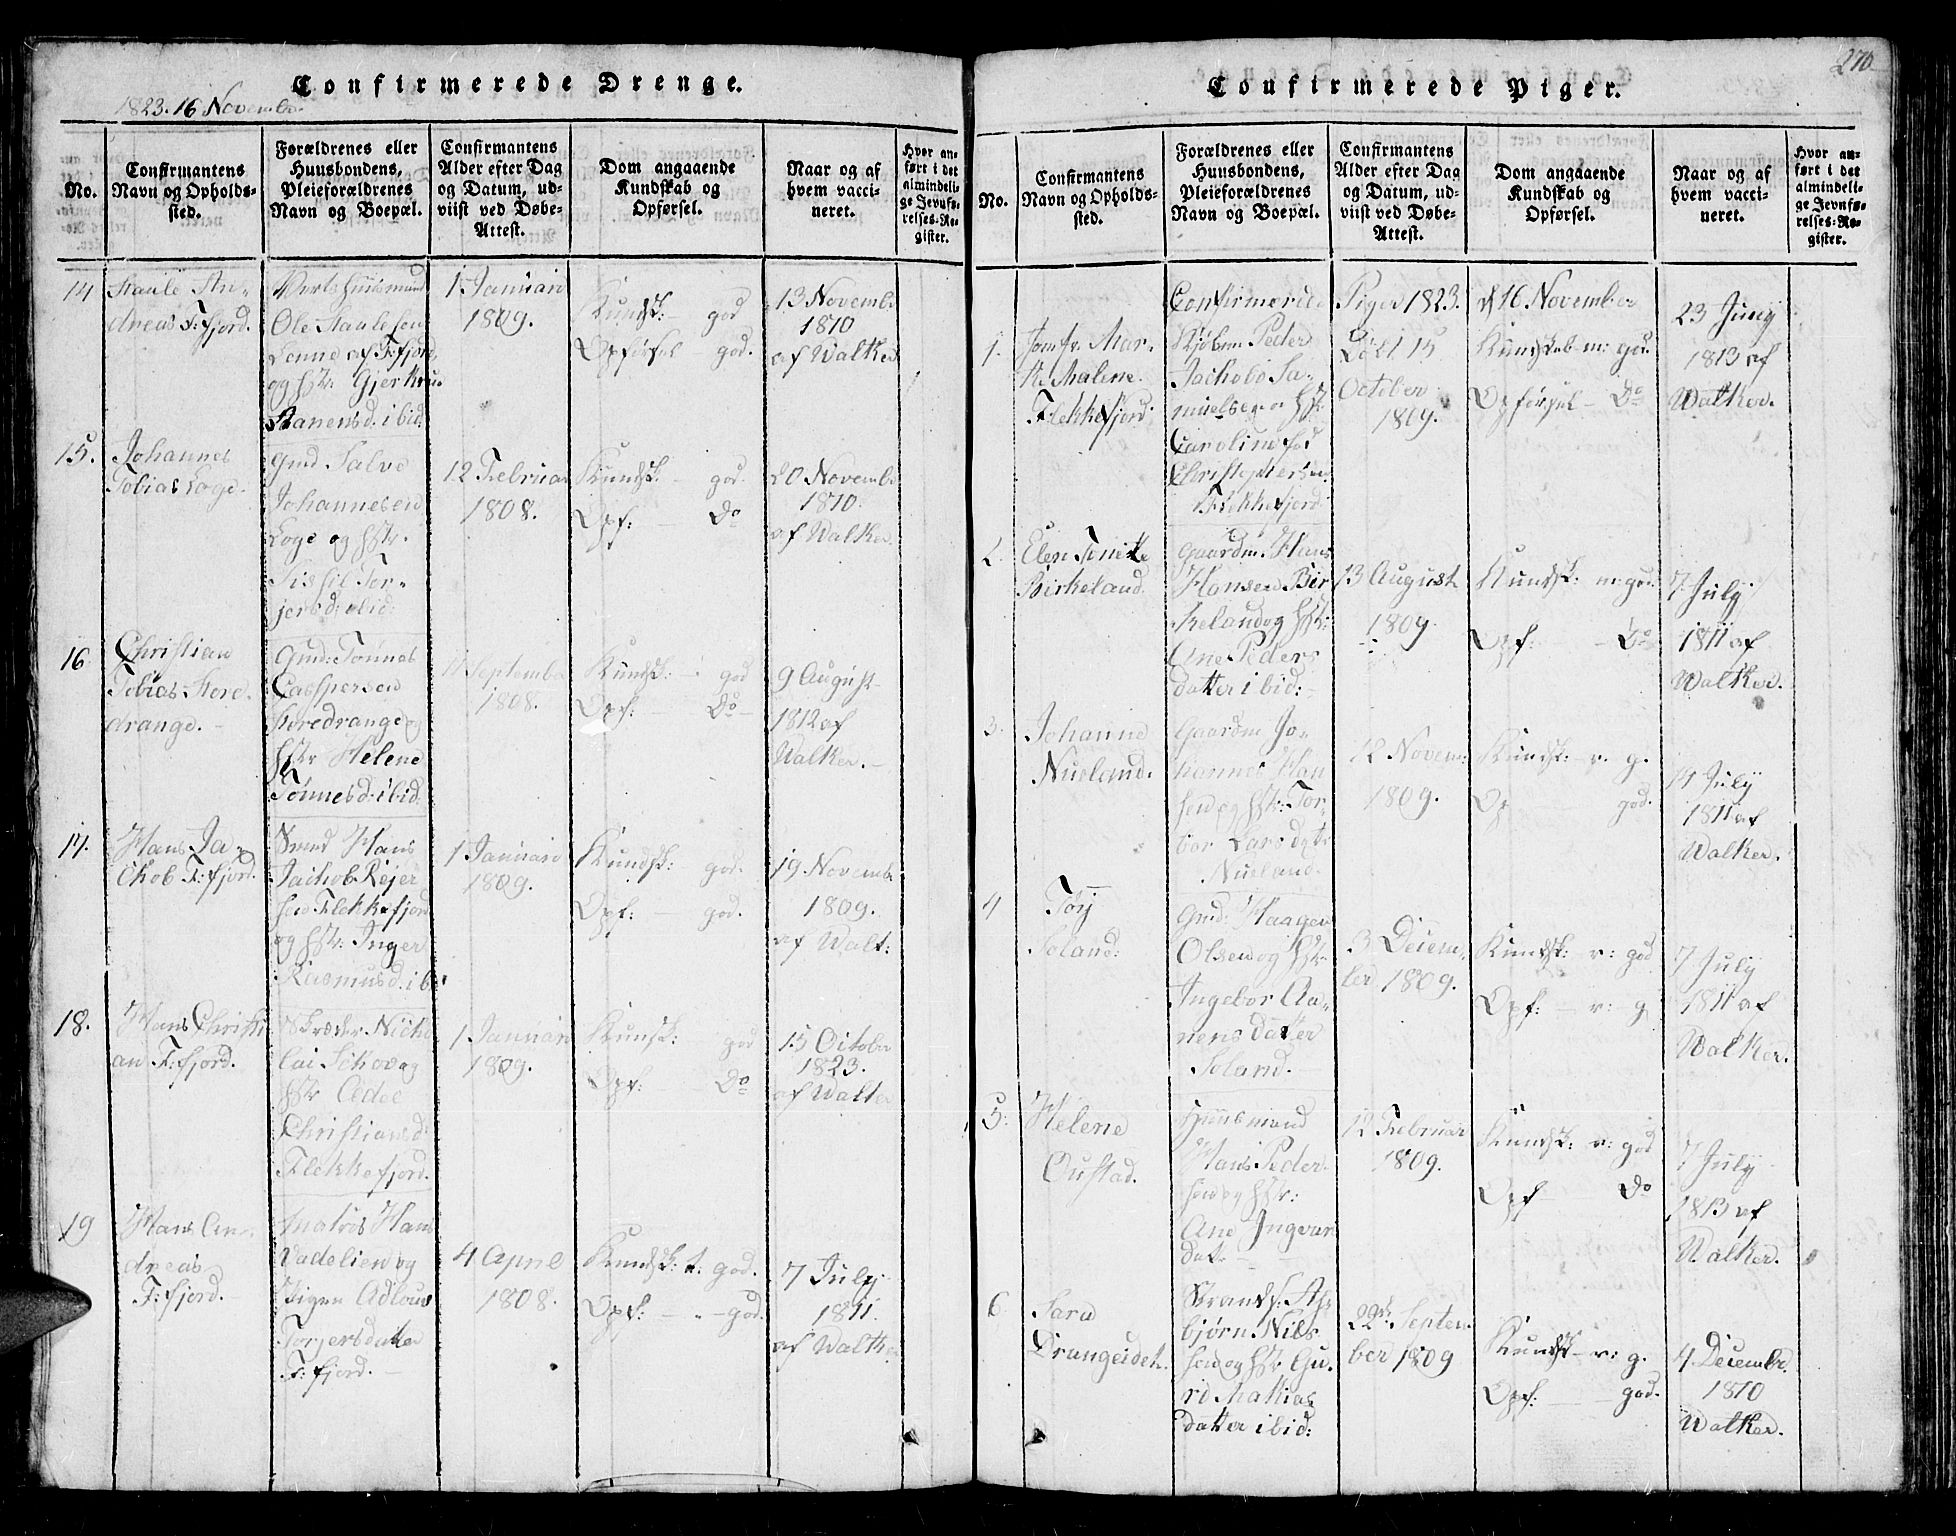 Confirmerede Drenge.
1823. 16 November
No.
Confirmantens
Navn og Opholds-
sted.
Forældrenes eller
Huusbondens,
Pleieforældrenes
Navn og Boepæl.
Confirmantens
Alder efter Dag
og Datum, ud-
viist ved Døbe-
Attest.
Dom angaaende
Kundskab og
Opførsel.
Naar og af
hvem vacci-
neret.
Hvor an-
ført i det
almindeli-
ge Jevnfø-
relses-Re-
gister.
14
Staale An-
dreas F:fjord.
Huusmand
Ole Staalesen
af F:fjord
og hstr: Gjertru
Aanensd. ibid.
1 Januari
1809.
Kundsk: - god
Opførsel - god.
13 Novemb:
1810
af Walker
15.
Johannes
Tobias Loge.
Gmd Salve
Johannesen
Loge og hstr.
Sissil Tor-
jersd: ibid:
12 Februar
1808.
Kundsk. - god.
Opf: - Do
20 Novemb:
1810.
af Walker.
16.
Christian
Tobias Store-
drange. -
Gmd: Tønnes
Caspersen
Storedrange og
hstr Helene
Tønnesd: ibid.
11 September
1808.
Kundsk: - god
Opf: - Do -
9 August
1812 af
Walker. -
17.
Hans Ja-
chob F:fjord.
Smed Hans
Jachob Rejer
sen Flekkefjord
og hstr: Inger
Rasmusd: ib:
1 Januari
1809.
Kundsk: god.
Opf: - god.
19 Novemb:
1809.
af Walt:
18.
Hans Christi
an F:fjord.
Skræder Nicho
lai Schov og
hstr Aedel
Christiansd:
Flekkefjord.
1 Januari
1809.
Kunsk: god
Opf: - Do
15 October
1823.
af Walter
19
Hans An-
dreas
F:fjord.
Matros Hans
Vadelien og
Pigen
Torjersdatter
F:fjord. -
4 April
1808.
Kundsk: t: god.
Opf: - - god.
7 July
1811.
af Walke
270
Confirmerede Piger.
No.
Confirmantens
Navn og Opholds-
sted.
Forældrenes eller
Huusbondens,
Pleieforældrenes
Navn og Boepæl.
Confirmantens
Alder efter Dag
og Datum, ud-
viist ved Døbe-
Attest.
Dom angaaende
Kundskab og
Opførsel.
Naar og af
hvem vacci-
neret.
Hvor an-
ført i det
almindeli-
ge Jevnfø-
relses-Re-
gister.
Confirmerede Piger 1823. d 16 November
1.
Jomfr. Mar-
te Malene.
Flekkefjord.
Kjøbm Peder
Jachob Sa-
muelsen og hstr
Caroline fød
Christophersen
Flekkefjord
Døbt 15
October
1809.
Kundskab m: god.
Opførsel - Do
23 Juny
1813 af
Walker.
2.
Elen Tonitte
Birkeland.
Gaardm. Hans
Hansen Bir
keland og hstr:
Ane Peders
datter ibid: -
13 August
1809.
Kundsk: m: god.
Opf: - Do
7 July
1811 af
Walker.
3.
Johanne
Nueland.
Gaardm Jo-
hannes Han
sen og hstr: Tor-
bor Lars dat:
Nueland.
12 Novem:
1809.
Kundsk: - v. g.
Op god.
14 July
1811 af
Walker.
4
Torj
Soland:
Gmd: Haagen
Olsen og hstr
Ingebor Aa-
nens datter
Soland. -
3 Decem-
ber 1809.
Kundsk: - v: god
Opf: - v: g
7 July
1811 af
Walker.
5:
Helene
Oustad.
Huusmand
Hans Peder-
sen og hstr:
Ane Ingvar
dat: -
12 Februar
1809.
Kundsk: v: god
Opf - Do
7 July
1813 af
Walker.
6
Sara
Drangeidet.
Strands: As
bjørn Nils
sen og hstr Gu-
ri Mathias
datter ibid:
22de Septem
ber 1809
Kundsk - v: g.
Opf: - god.
4 Decembr.
1810
Walker.